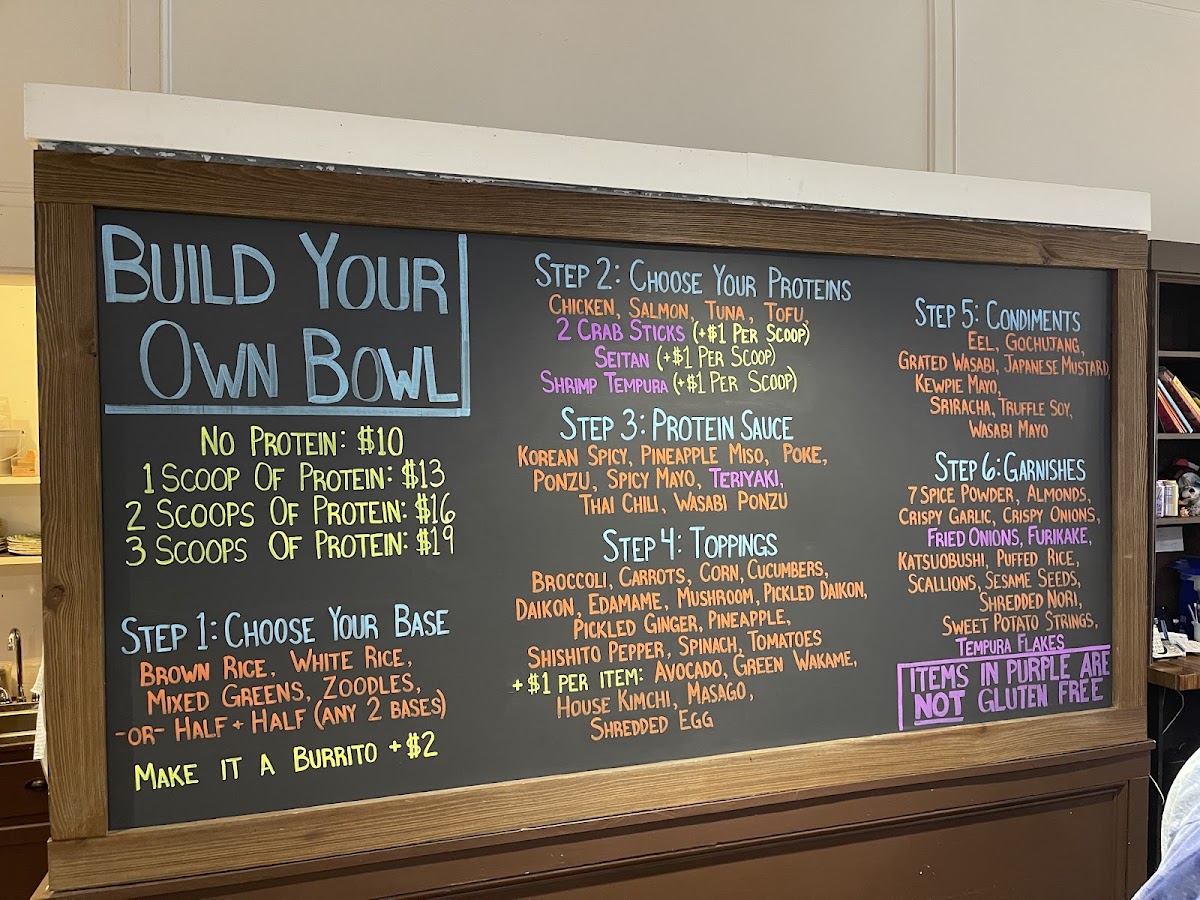 BUILD YOUR
OWN BOWL
NO PROTEIN: $10
1 SCOOP OF PROTEIN: $13
2 SCOOPS OF PROTEIN: $16
3 SCOOPS OF PROTEIN: $19
STEP 1: CHOOSE YOUR BASE
BROWN RICE, WHITE RICE,
MIXED GREENS, ZOODLES,
-OR- HALF + HALF (ANY 2 BASES)
MAKE IT A BURRITO +$2
STEP 2: CHOOSE YOUR PROTEINS
CHICKEN, SALMON, TUNA, TOFU,
2 CRAB STICKS (+$1 PER SCOOP)
SEITAN (+$1 PER SCOOP)
SHRIMP TEMPURA (+$1 PER SCOOP)
STEP 3: PROTEIN SAUCE
KOREAN SPICY, PINEAPPLE MISO, POKE,
PONZU, SPICY MAYO, TERIYAKI,
THAI CHILI, WASABI PONZU
STEP 4: TOPPINGS
BROCCOLI, CARROTS, CORN, CUCUMBERS,
DAIKON, EDAMAME, MUSHROOM, PICKLED DAIKON,
PICKLED GINGER, PINEAPPLE,
SHISHITO PEPPER, SPINACH, TOMATOES
+$1 PER ITEM: AVOCADO, GREEN WAKAME,
HOUSE KIMCHI, MASAGO,
SHREDDED EGG
STEP 5: CONDIMENTS
EEL, GOCHUJANG,
GRATED WASABI, JAPANESE MUSTARD,
KEWPIE MAYO,
SRIRACHA, TRUFFLE SOY,
WASABI MAYO
STEP 6: GARNISHES
7 SPICE POWDER, ALMONDS,
CRISPY GARLIC, CRISPY ONIONS,
FRIED ONIONS, FURIKAKE,
KATSUOBUSHI, PUFFED RICE,
SCALLIONS, SESAME SEEDS,
SHREDDED NORI,
SWEET POTATO STRINGS,
TEMPURA FLAKES
ITEMS IN PURPLE ARE
NOT GLUTEN FREE